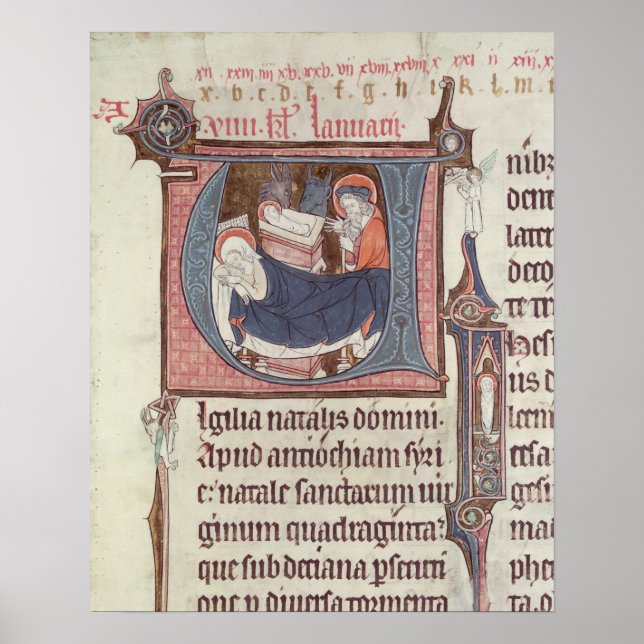 xii xxiii iiii xv. xxv. vii xviii. xxviii. x xxi ii xiii. x
x.b.c.d.e.f.g.h i.k.l.m.
A
viiii. kł Ianuarii.
U
Igilia natalis domini.
Apud antiochiam syri
e: natale sanctarum uir
ginum quadraginta:
que sub deciana psecuti
one p diuersa tormenta
nibz
dent
later
deco
te te
A
us d
lcem
cesa
gesi
mai
phe
ta.o